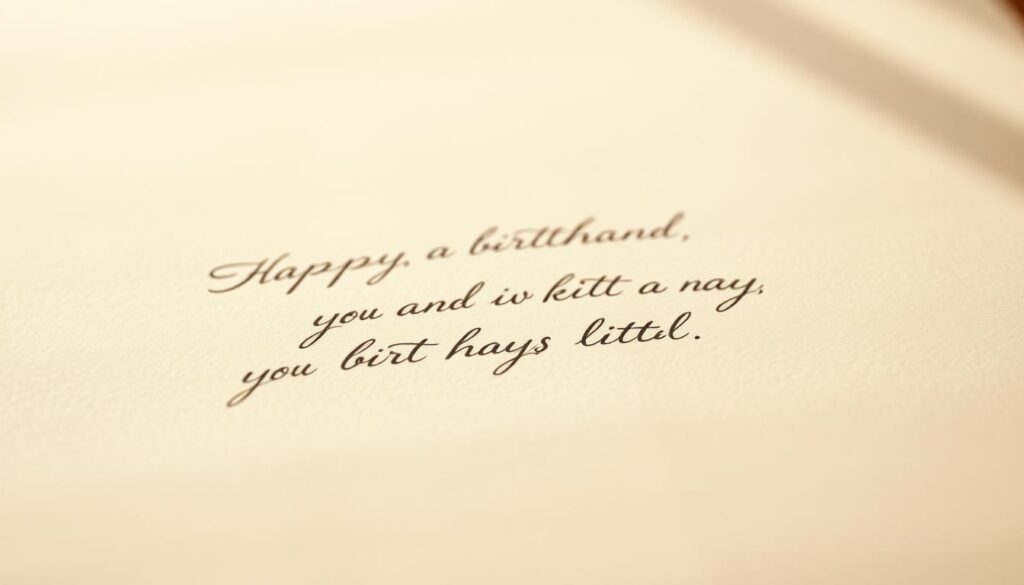 Happy, a birtthand,
you and iv kitt a nay,
you birt hays littd.